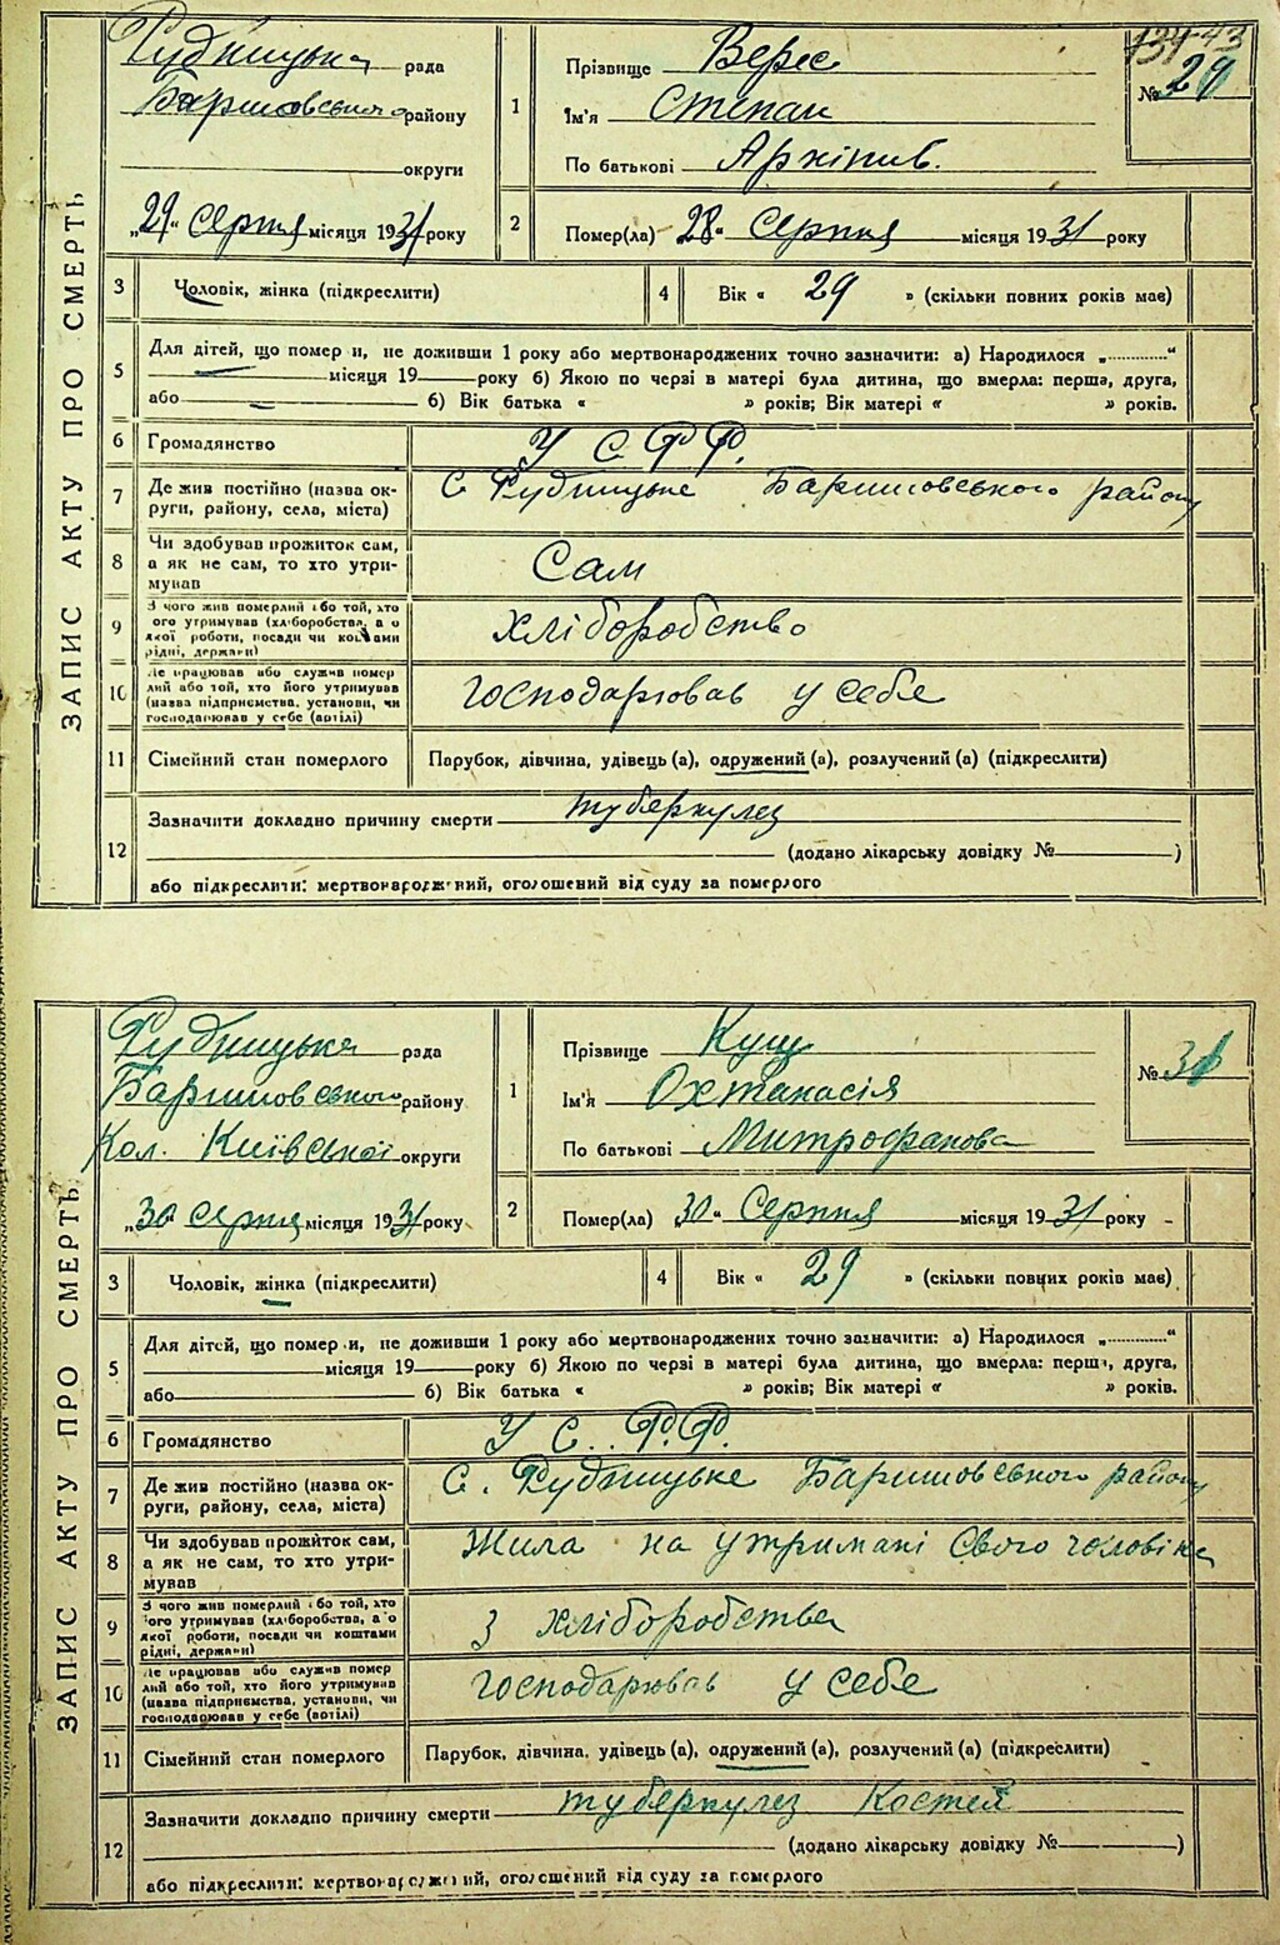 ЗАПИС АКТУ ПРО СМЕРТЬ
Рудницька рада
Баришовського району
округи
„29“ Серпня місяця 1931 року
1
Прізвище Верес
Ім'я Степан
По батькові Архипив.
134-43
№ 29
2
Помер(ла) 28 „ Серпня місяця 1931 року
3 Чоловік, жінка (підкреслити)
4 Вік « 29 » (скільки повних років має)
5
Для дітей, що помер и, не доживши 1 року або мертвонароджених точно зазначити: а) Народилося „.............“
місяця 19 року б) Якою по черзі в матері була дитина, що вмерла: перша, друга,
або б) Вік батька « » років; Вік матері « » років.
6 Громадянство У С. Р Р.
7 Де жив постійно (назва ок-
руги, району, села, міста)
С Рудницьке Баришовського району
8 Чи здобував прожиток сам,
а як не сам, то хто утри-
мував
Сам
9 З чого жив померлий або той, хто
ого утримував (хліборобства, а о
якої роботи, посади чи коштами
рідні, держави)
хліборобство
10 Де працював або служив помер
лий або той, хто його утримував
(назва підприємства, установи, чи
господарював у себе (артілі)
господарював у себе
11 Сімейний стан померлого Парубок, дівчина, удівець (а), одружений (а), розлучений (а) (підкреслити)
12
Зазначити докладно причину смерти туберкулез
(додано лікарську довідку № )
або підкреслити: мертвонароджений, оголошений від суду за померлого
ЗАПИС АКТУ ПРО СМЕРТЬ
Рудницька рада
Баришовського району
Кол. Київської округи
„30“ Серпня місяця 1931 року
1
Прізвище Кущ
Ім'я Охтанасія
По батькові Митрофанова
№ 30
2
Помер(ла) 30 „ Серпня місяця 1931 року
3 Чоловік, жінка (підкреслити)
4 Вік « 29 » (скільки повних років має)
5
Для дітей, що помер и, не доживши 1 року або мертвонароджених точно зазначити: а) Народилося „.............“
місяця 19 року б) Якою по черзі в матері була дитина, що вмерла: перша, друга,
або б) Вік батька « » років; Вік матері « » років.
6 Громадянство У С.. Р.Р.
7 Де жив постійно (назва ок-
руги, району, села, міста)
С. Рудницьке Баришовського району
8 Чи здобував прожиток сам,
а як не сам, то хто утри-
мував
Жила на утримані свого чоловіка
9 З чого жив померлий або той, хто
ого утримував (хліборобства, а о
якої роботи, посади чи коштами
рідні, держави)
з хліборобства
10 Де працював або служив помер
лий або той, хто його утримував
(назва підприємства, установи, чи
господарював у себе (артілі)
господарював у себе
11 Сімейний стан померлого Парубок, дівчина, удівець (а), одружений (а), розлучений (а) (підкреслити)
12
Зазначити докладно причину смерти туберкулез Костей
(додано лікарську довідку № )
або підкреслити: мертвонароджений, оголошений від суду за померлого